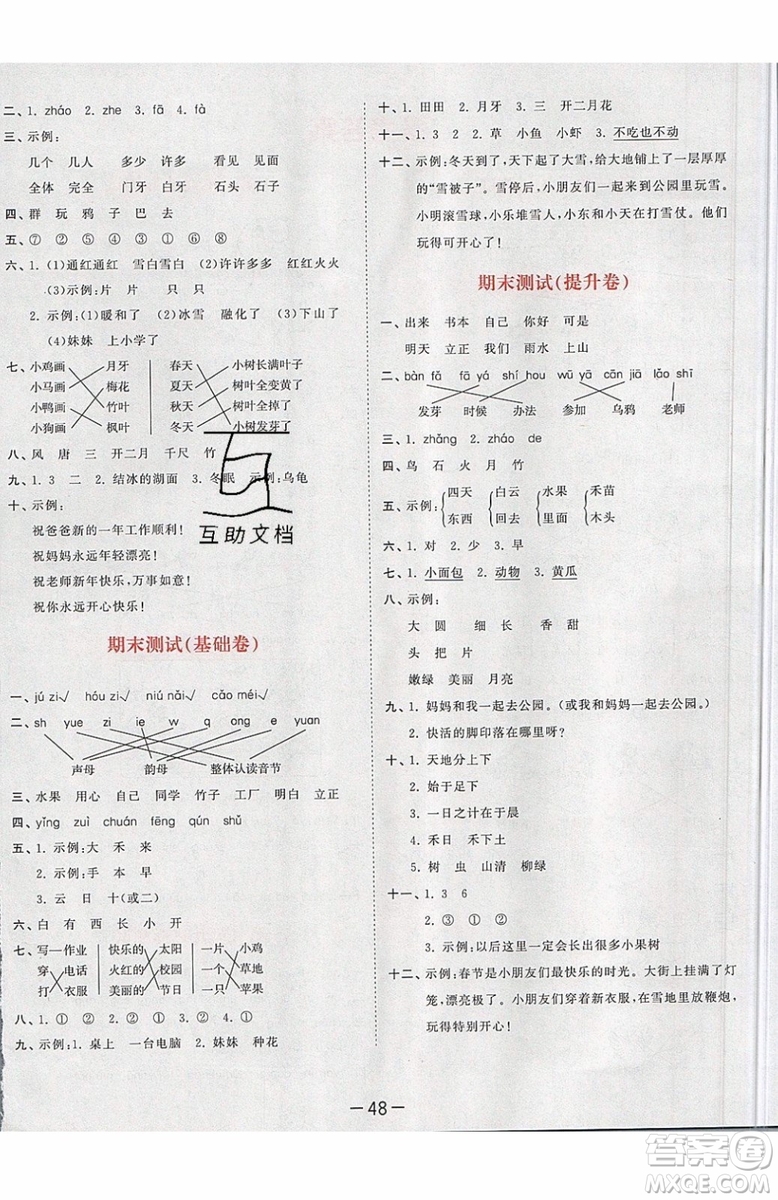 二、1. zháo 2. zhe 3. fā 4. fà
三、示例：
几个 几人 多少 许多 看见 见面
全体 完全 门牙 白牙 石头 石子
四、群 玩 鸦 子 巴 去
五、⑦ ② ④ ③ ① ⑤ ⑥ ⑧
六、1. (1)通红通红 雪白雪白 (2)许许多多 红红火火
(3)示例：片 片 只 只
2. 示例：(1)暖和了 (2)冰雪 融化了 (3)下山了
(4)妹妹 上小学了
七、小鸡画 月牙 春天 小树长满叶子
小马画 梅花 夏天 树叶全变黄了
小鸭画 竹叶 秋天 树叶全掉了
小狗画 枫叶 冬天 小树发芽了
八、风 唐 三 开 二月 千尺 竹
九、1. 3 2. 结冰的湖面 3. 冬眠 示例：乌龟
十、示例：
祝爸爸新的一年工作顺利！
祝妈妈永远年轻漂亮！
祝老师新年快乐，万事如意！
祝你永远开心快乐！
期末测试(基础卷)
一、jú zi√ hóu zi√ niú nǎi√ cǎo méi√
二、sh yue zi ie w q ong e yuan
声母 韵母 整体认读音节
三、水果 用心 自己 同学 竹子 工厂 明白 立正
四、yǐng zuì chuán fēng qún shǔ
五、1. 示例：大 禾 来
2. 示例：手 本 早
3. 云 日 十(或二)
六、白 有 西 长 小 开
七、写 作业 快乐的 太阳 一片 小鸡
穿 电话 火红的 校园 一个 草地
打 衣服 美丽的 节日 一只 苹果
八、1. ① ② 2. ② ① ② ①
九、示例：1. 桌上 一台电脑 2. 妹妹 种花
十、1. 田田 2. 月牙 3. 三 开二月花
十一、1. 3 2 2. 草 小鱼 小虾 3. 不吃也不动
十二、示例：冬天到了，天下起了大雪，给大地铺上了一层厚厚
的“雪被子”。雪停后，小朋友们一起来到公园里玩雪。
小明滚雪球，小乐堆雪人，小东和小天在打雪仗。他们
玩得可开心了！
期末测试(提升卷)
一、出来 书本 自己 你好 可是
明天 立正 我们 雨水 上山
二、bàn fǎ fā yá shí hou wū yā cān jiā lǎo shī
发芽 时候 办法 参加 乌鸦 老师
三、1. zhǎng 2. zháo de
四、鸟 石 火 月 竹
五、示例：四天 白云 水果 禾苗
东西 回去 里面 木头
六、1. 对 2. 少 3. 早
七、1. 小面包 2. 动物 3. 黄瓜
八、示例：
大 圆 细 长 香 甜
头 把 片
嫩绿 美丽 月亮
九、1. 妈妈和我一起去公园。(或我和妈妈一起去公园。)
2. 快活的脚印落在哪里呀？
十、1. 天地分上下
2. 始于足下
3. 一日之计在于晨
4. 禾日 禾下土
5. 树 虫 山清 柳绿
十一、1. 3 6
2. ③ ① ②
3. 示例：以后这里一定会长出好多小果树
十二、示例：春节是小朋友们最快乐的时光。大街上挂满了灯
笼，漂亮极了。小朋友们穿着新衣服，在雪地里放鞭炮，
玩得特别开心！
互助文档
— 48 —
答案圈
MXQE.COM